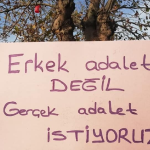 Erkek adalet
DEĞİL
Gerçek adalet
İSTİYORUZ